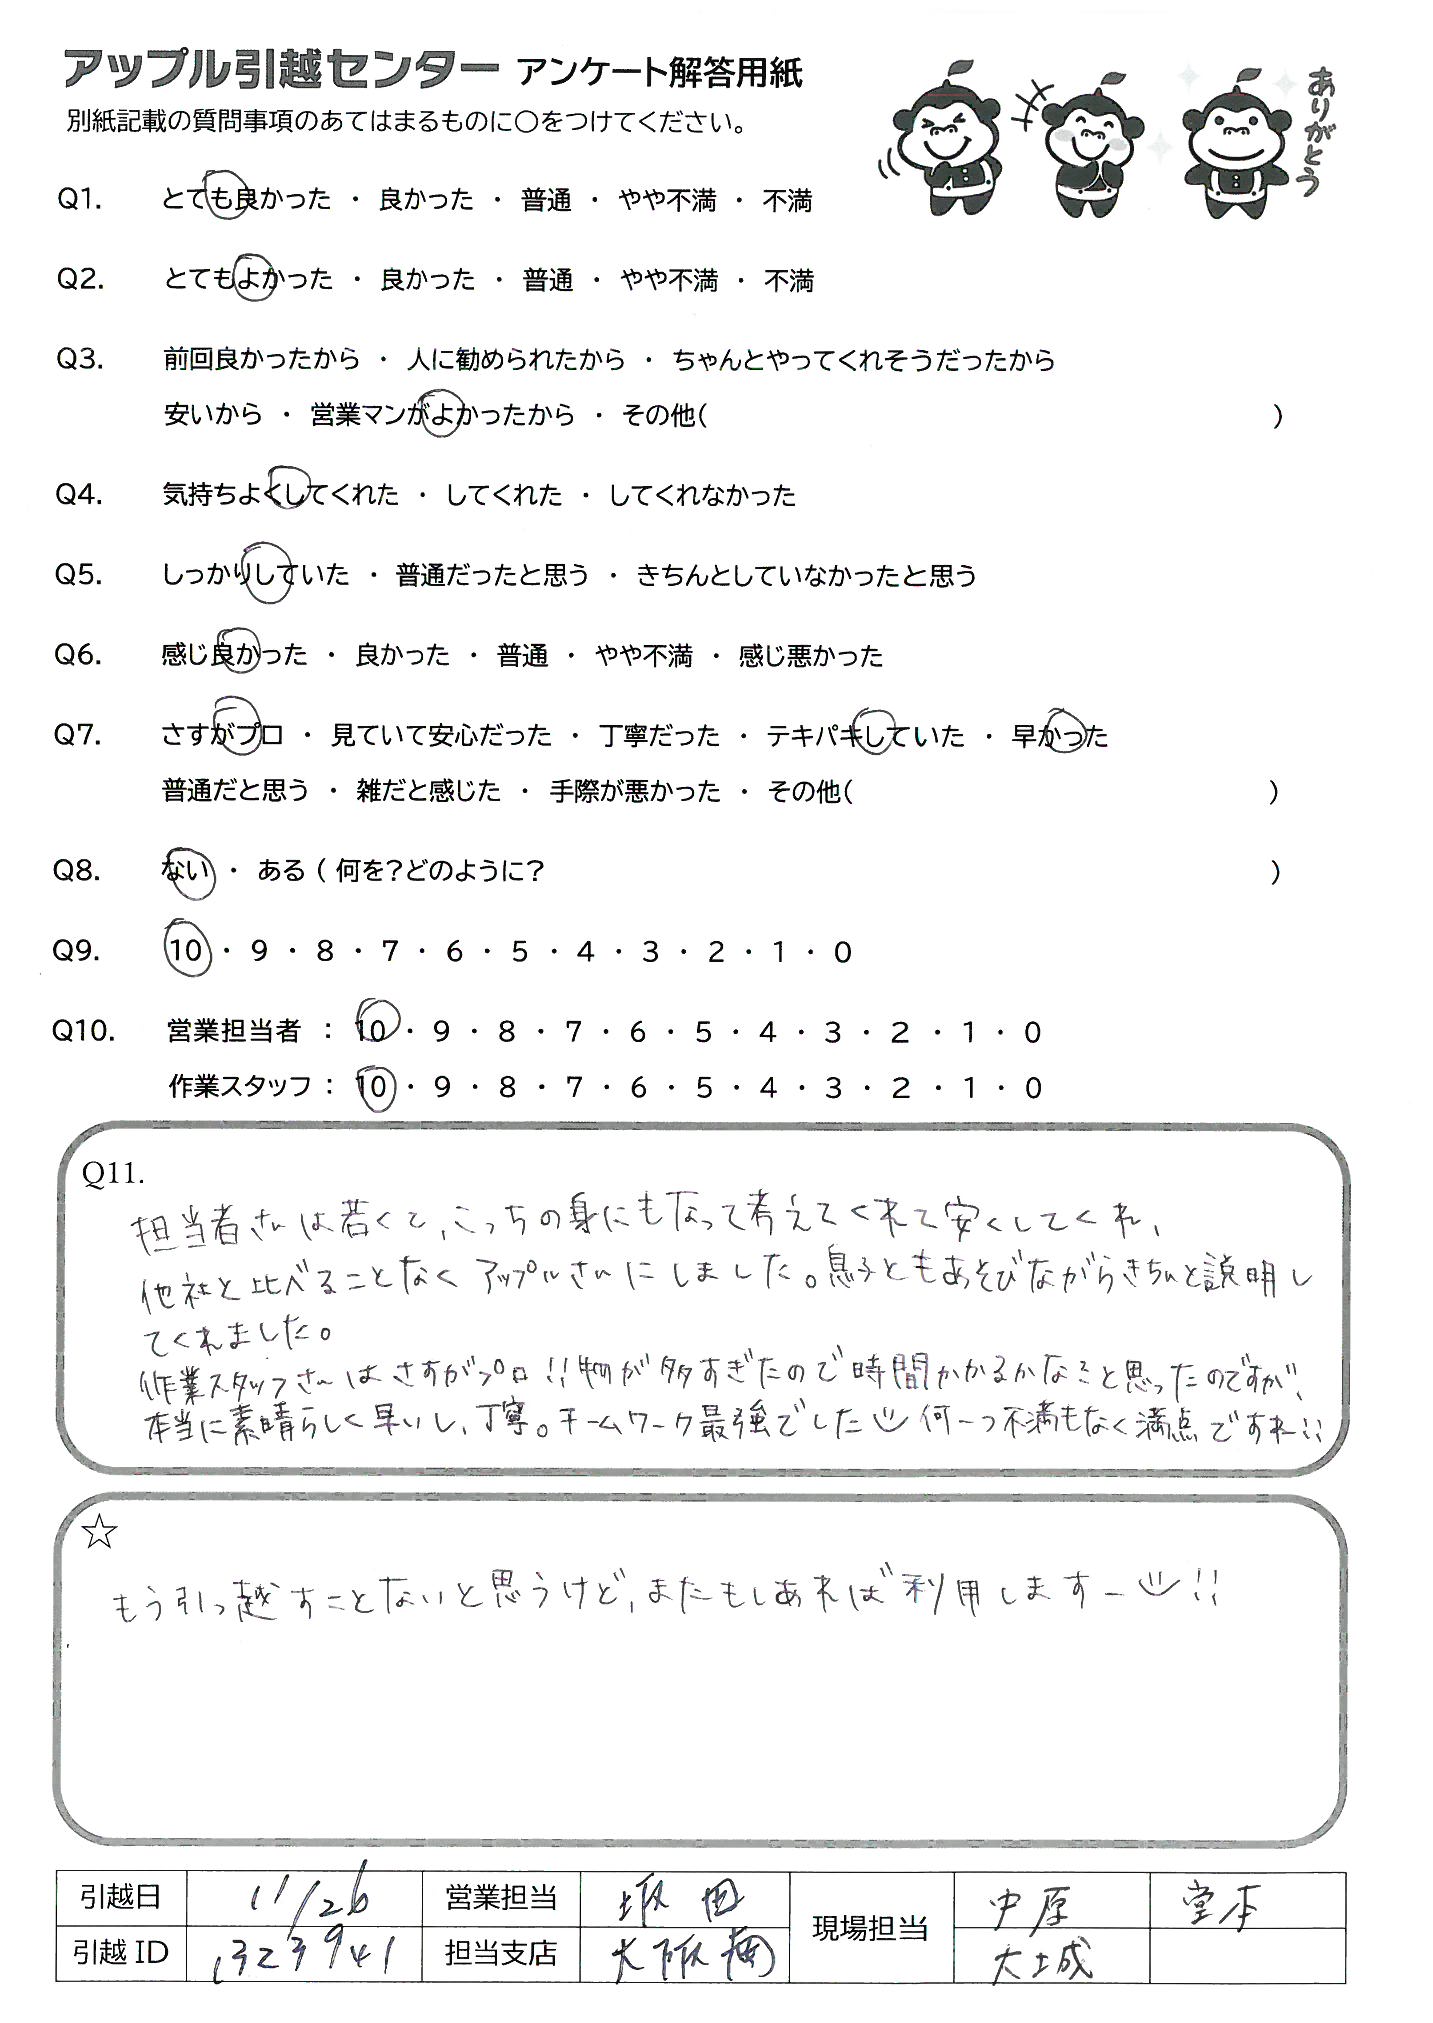 アップル引越センター アンケート解答用紙
別紙記載の質問事項のあてはまるものに○をつけてください。
ありがとう
Q1. とても良かった ・ 良かった ・ 普通 ・ やや不満 ・ 不満
Q2. とてもよかった ・ 良かった ・ 普通 ・ やや不満 ・ 不満
Q3. 前回良かったから ・ 人に勧められたから ・ ちゃんとやってくれそうだったから
安いから ・ 営業マンがよかったから ・ その他( )
Q4. 気持ちよくしてくれた ・ してくれた ・ してくれなかった
Q5. しっかりしていた ・ 普通だったと思う ・ きちんとしていなかったと思う
Q6. 感じ良かった ・ 良かった ・ 普通 ・ やや不満 ・ 感じ悪かった
Q7. さすがプロ ・ 見ていて安心だった ・ 丁寧だった ・ テキパキしていた ・ 早かった
普通だと思う ・ 雑だと感じた ・ 手際が悪かった ・ その他( )
Q8. ない ・ ある ( 何を?どのように? )
Q9. 10 ・ 9 ・ 8 ・ 7 ・ 6 ・ 5 ・ 4 ・ 3 ・ 2 ・ 1 ・ 0
Q10. 営業担当者 : 10 ・ 9 ・ 8 ・ 7 ・ 6 ・ 5 ・ 4 ・ 3 ・ 2 ・ 1 ・ 0
作業スタッフ : 10 ・ 9 ・ 8 ・ 7 ・ 6 ・ 5 ・ 4 ・ 3 ・ 2 ・ 1 ・ 0
Q11.
担当者さんは若くて、こっちの身にもなって考えてくれて安くしてくれ、
他社と比べることなくアップルさんにしました。息子ともあそびながらきちんと説明し
てくれました。
作業スタッフさんはさすがプロ!!物が多すぎたので時間かかるかなぁと思ったのですが、
本当に素晴らしく早いし、丁寧。チームワーク最強でした 何一つ不満もなく満点ですねー!!
☆
もう引っ越すことないと思うけど、またもしあれば利用しますー!!
引越日 11/26 営業担当 坂田 現場担当 中原 堂本
引越 ID 1323941 担当支店 大阪南 大城